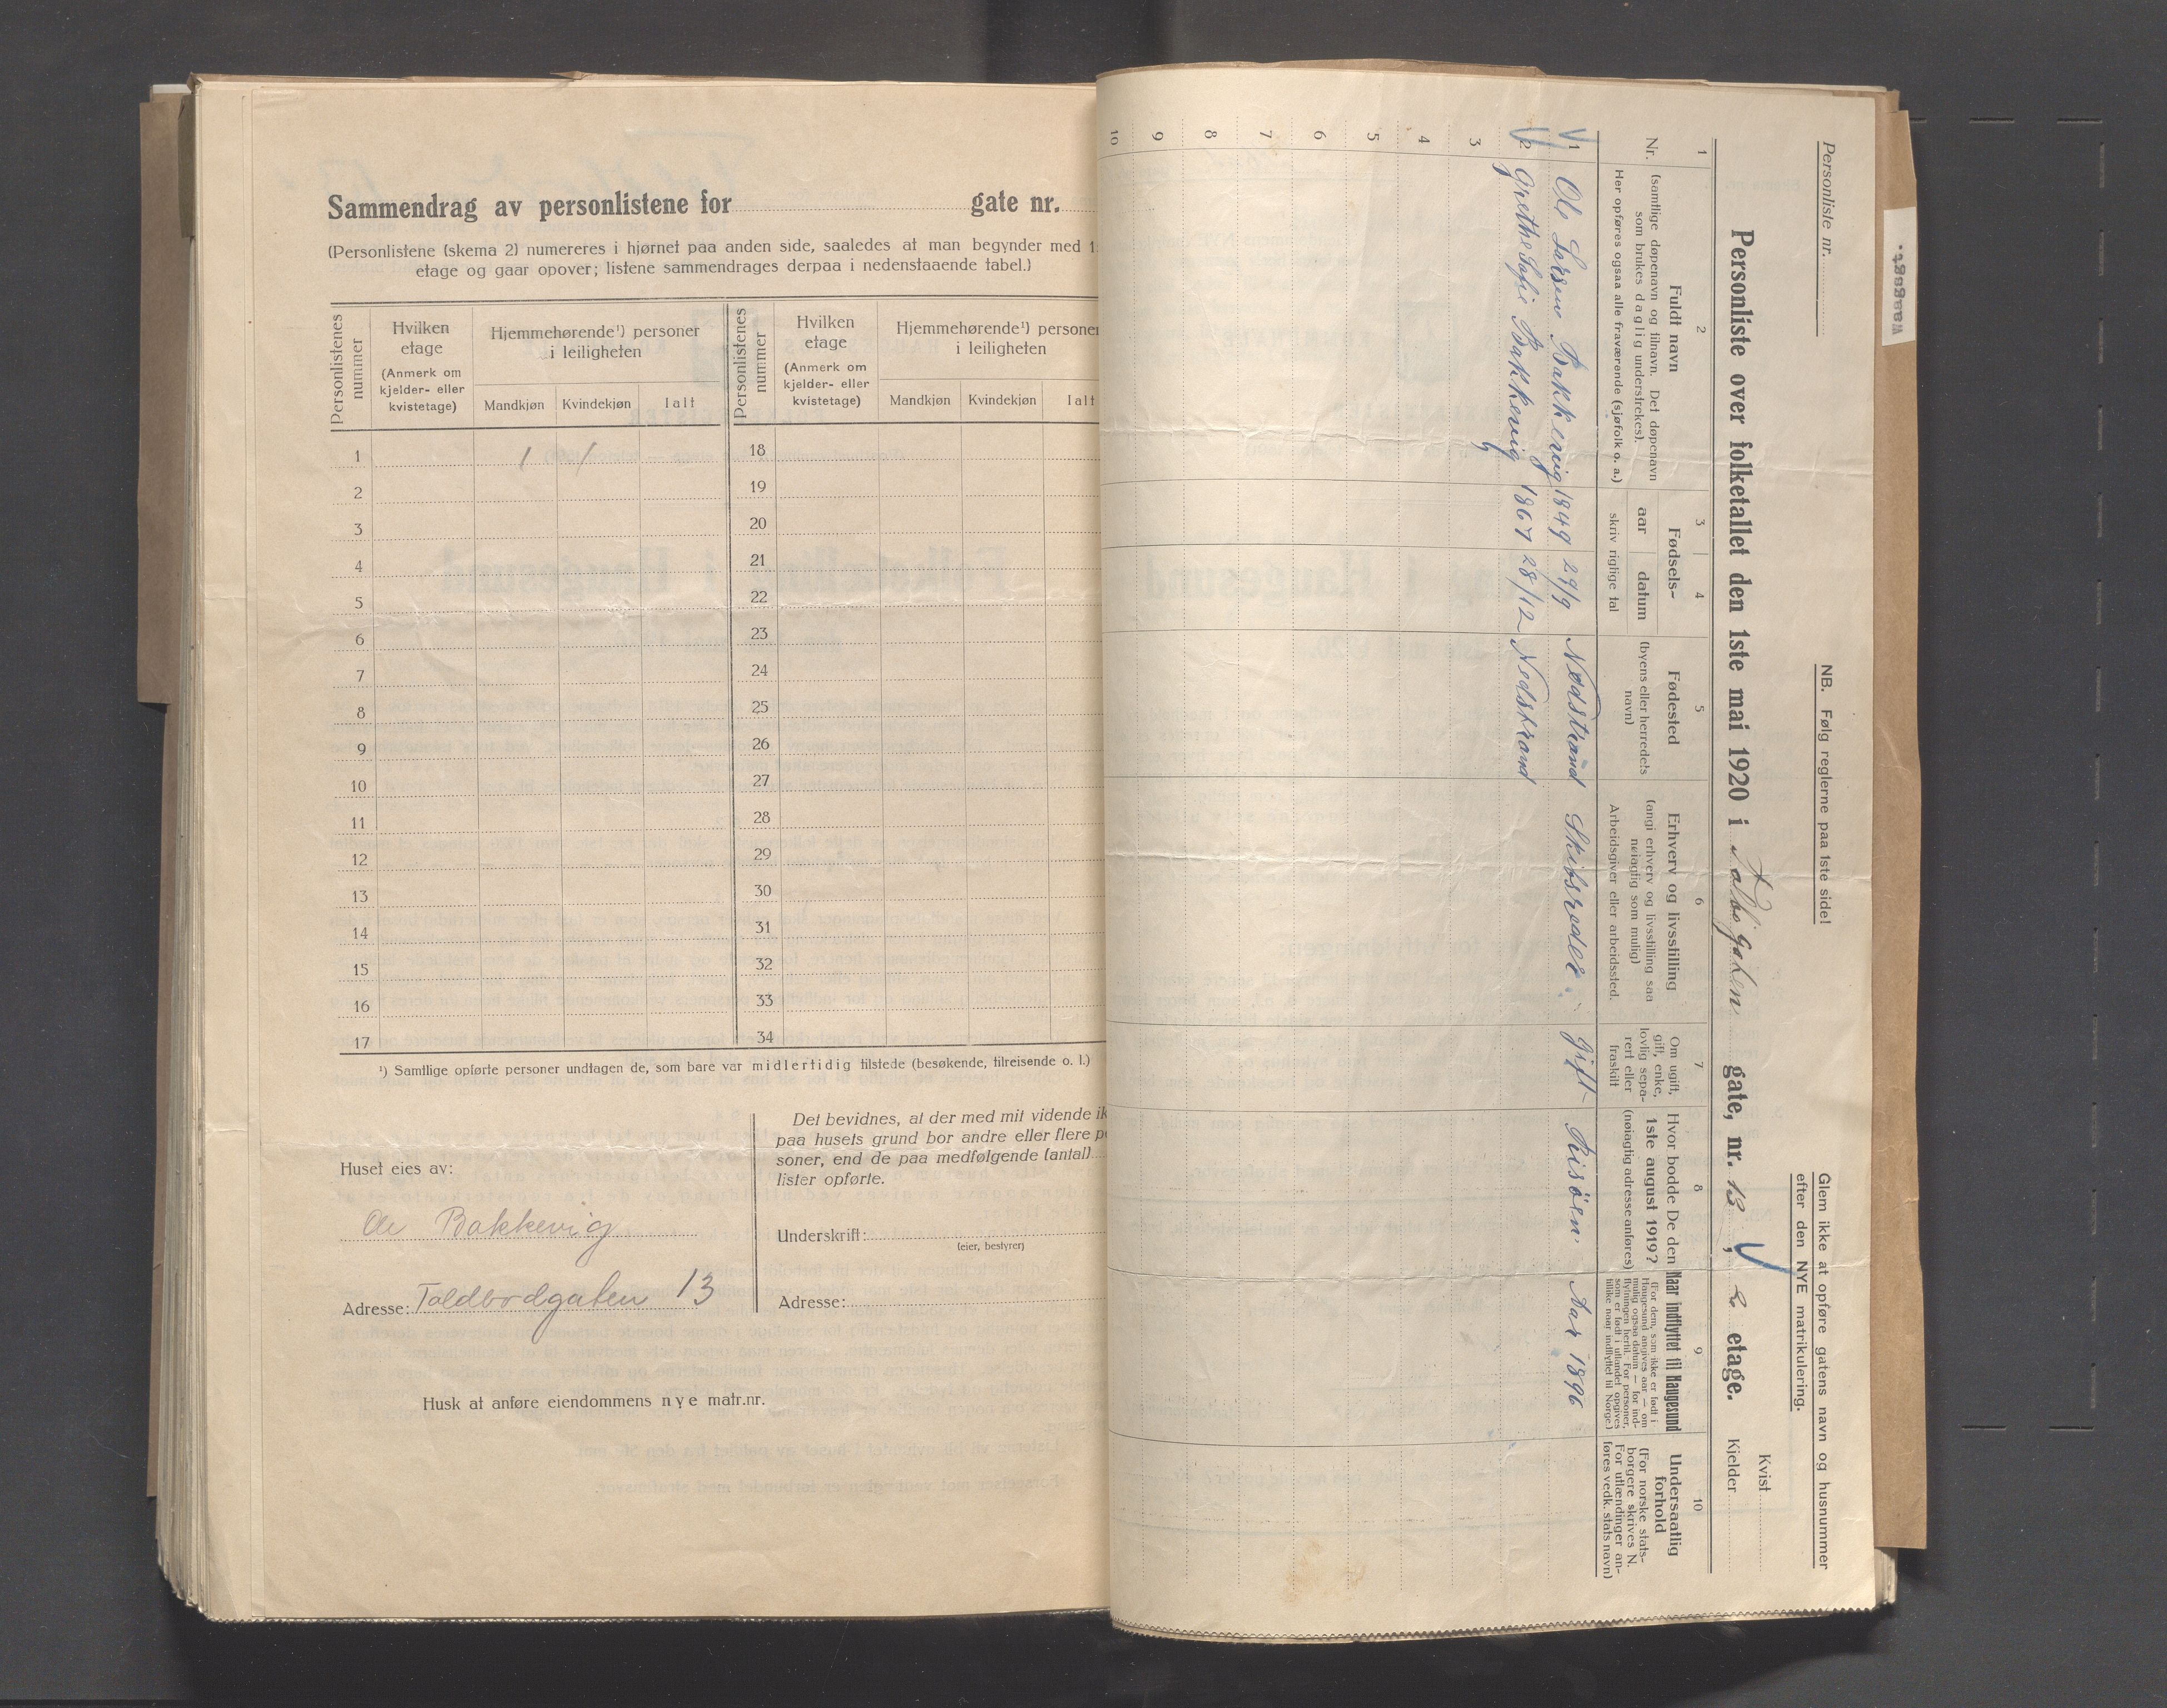 Sammendrag av personlistene for gate nr.
(Personlistene (skema 2) numereres i hjørnet paa anden side, saaledes at man begynder med 1.
etage og gaar opover; listene sammendrages derpaa i nedenstaaende tabel.)
Personlistenes nummer
Hvilken etage
(Anmerk om kjelder- eller kvistetage)
Hjemmehørende¹) personer i leiligheten
Mandkjøn Kvindekjøn Ialt
Personlistenes nummer
Hvilken etage
(Anmerk om kjelder- eller kvistetage)
Hjemmehørende¹) personer i leiligheten
Mandkjøn Kvindekjøn Ialt
1 1 1 18
2 19
3 20
4 21
5 22
6 23
7 24
8 25
9 26
10 27
11 28
12 29
13 30
14 31
15 32
16 33
17 34
¹) Samtlige opførte personer undtagen de, som bare var midlertidig tilstede (besøkende, tilreisende o. l.)
Huset eies av:
Ole Bakkevig
Adresse: Toldbodgaten 13
Det bevidnes, at der med mit vidende ik
paa husets grund bor andre eller flere pe
soner, end de paa medfølgende (antal)
lister opførte.
Underskrift:
(eier, bestyrer)
Adresse:
Husk at anføre eiendommens nye matr.nr.
Personliste nr.
NB. Følg reglerne paa 1ste side!
Glem ikke at opføre gatens navn og husnummer
efter den NYE matrikulering.
Kvist
Personliste over folketallet den 1ste mai 1920 i gate, nr. 13, 2 etage. Kjelder
1 2 3 4 5 6 7 8 9 10
Nr.
Fuldt navn
(samtlige døpenavn og tilnavn. Det døpenavn
som brukes daglig understrekes).
Her opføres ogsaa alle fraværende (sjøfolk o. a.)
Fødsels-
aar datum
skriv rigtige tal
Fødested
(byens eller herredets
navn)
Erhverv og livsstilling
(angi erhverv og livsstilling saa
nøiagtig som mulig)
Arbeidsgiver eller arbeidssted.
Om ugift,
gift, enke,
lovlig sepa-
rert eller
fraskilt
Hvor bodde De den
1ste august 1919?
(nøiagtig adresse anføres)
Naar indflyttet til Haugesund
(For dem, som ikke er født i
Haugesund angives aar — om
mulig ogsaa datum — for ind-
flytningen hertil. For personer,
som er født i utlandet opgives
tillike naar indflyttet til Norge.)
Undersaatlig
forhold
(For norske stats-
borgere skrives N.
For utlændinger an-
føres vedk. stats navn)
1 Ole Larsen Bakkevig 1849 29/9 Nedstrand Skibsreder. gift Risøen. Aar 1896
2 Grethe Sofie Bakkevig 1867 28/12 Nedstrand
3
4
5
6
7
8
9
10